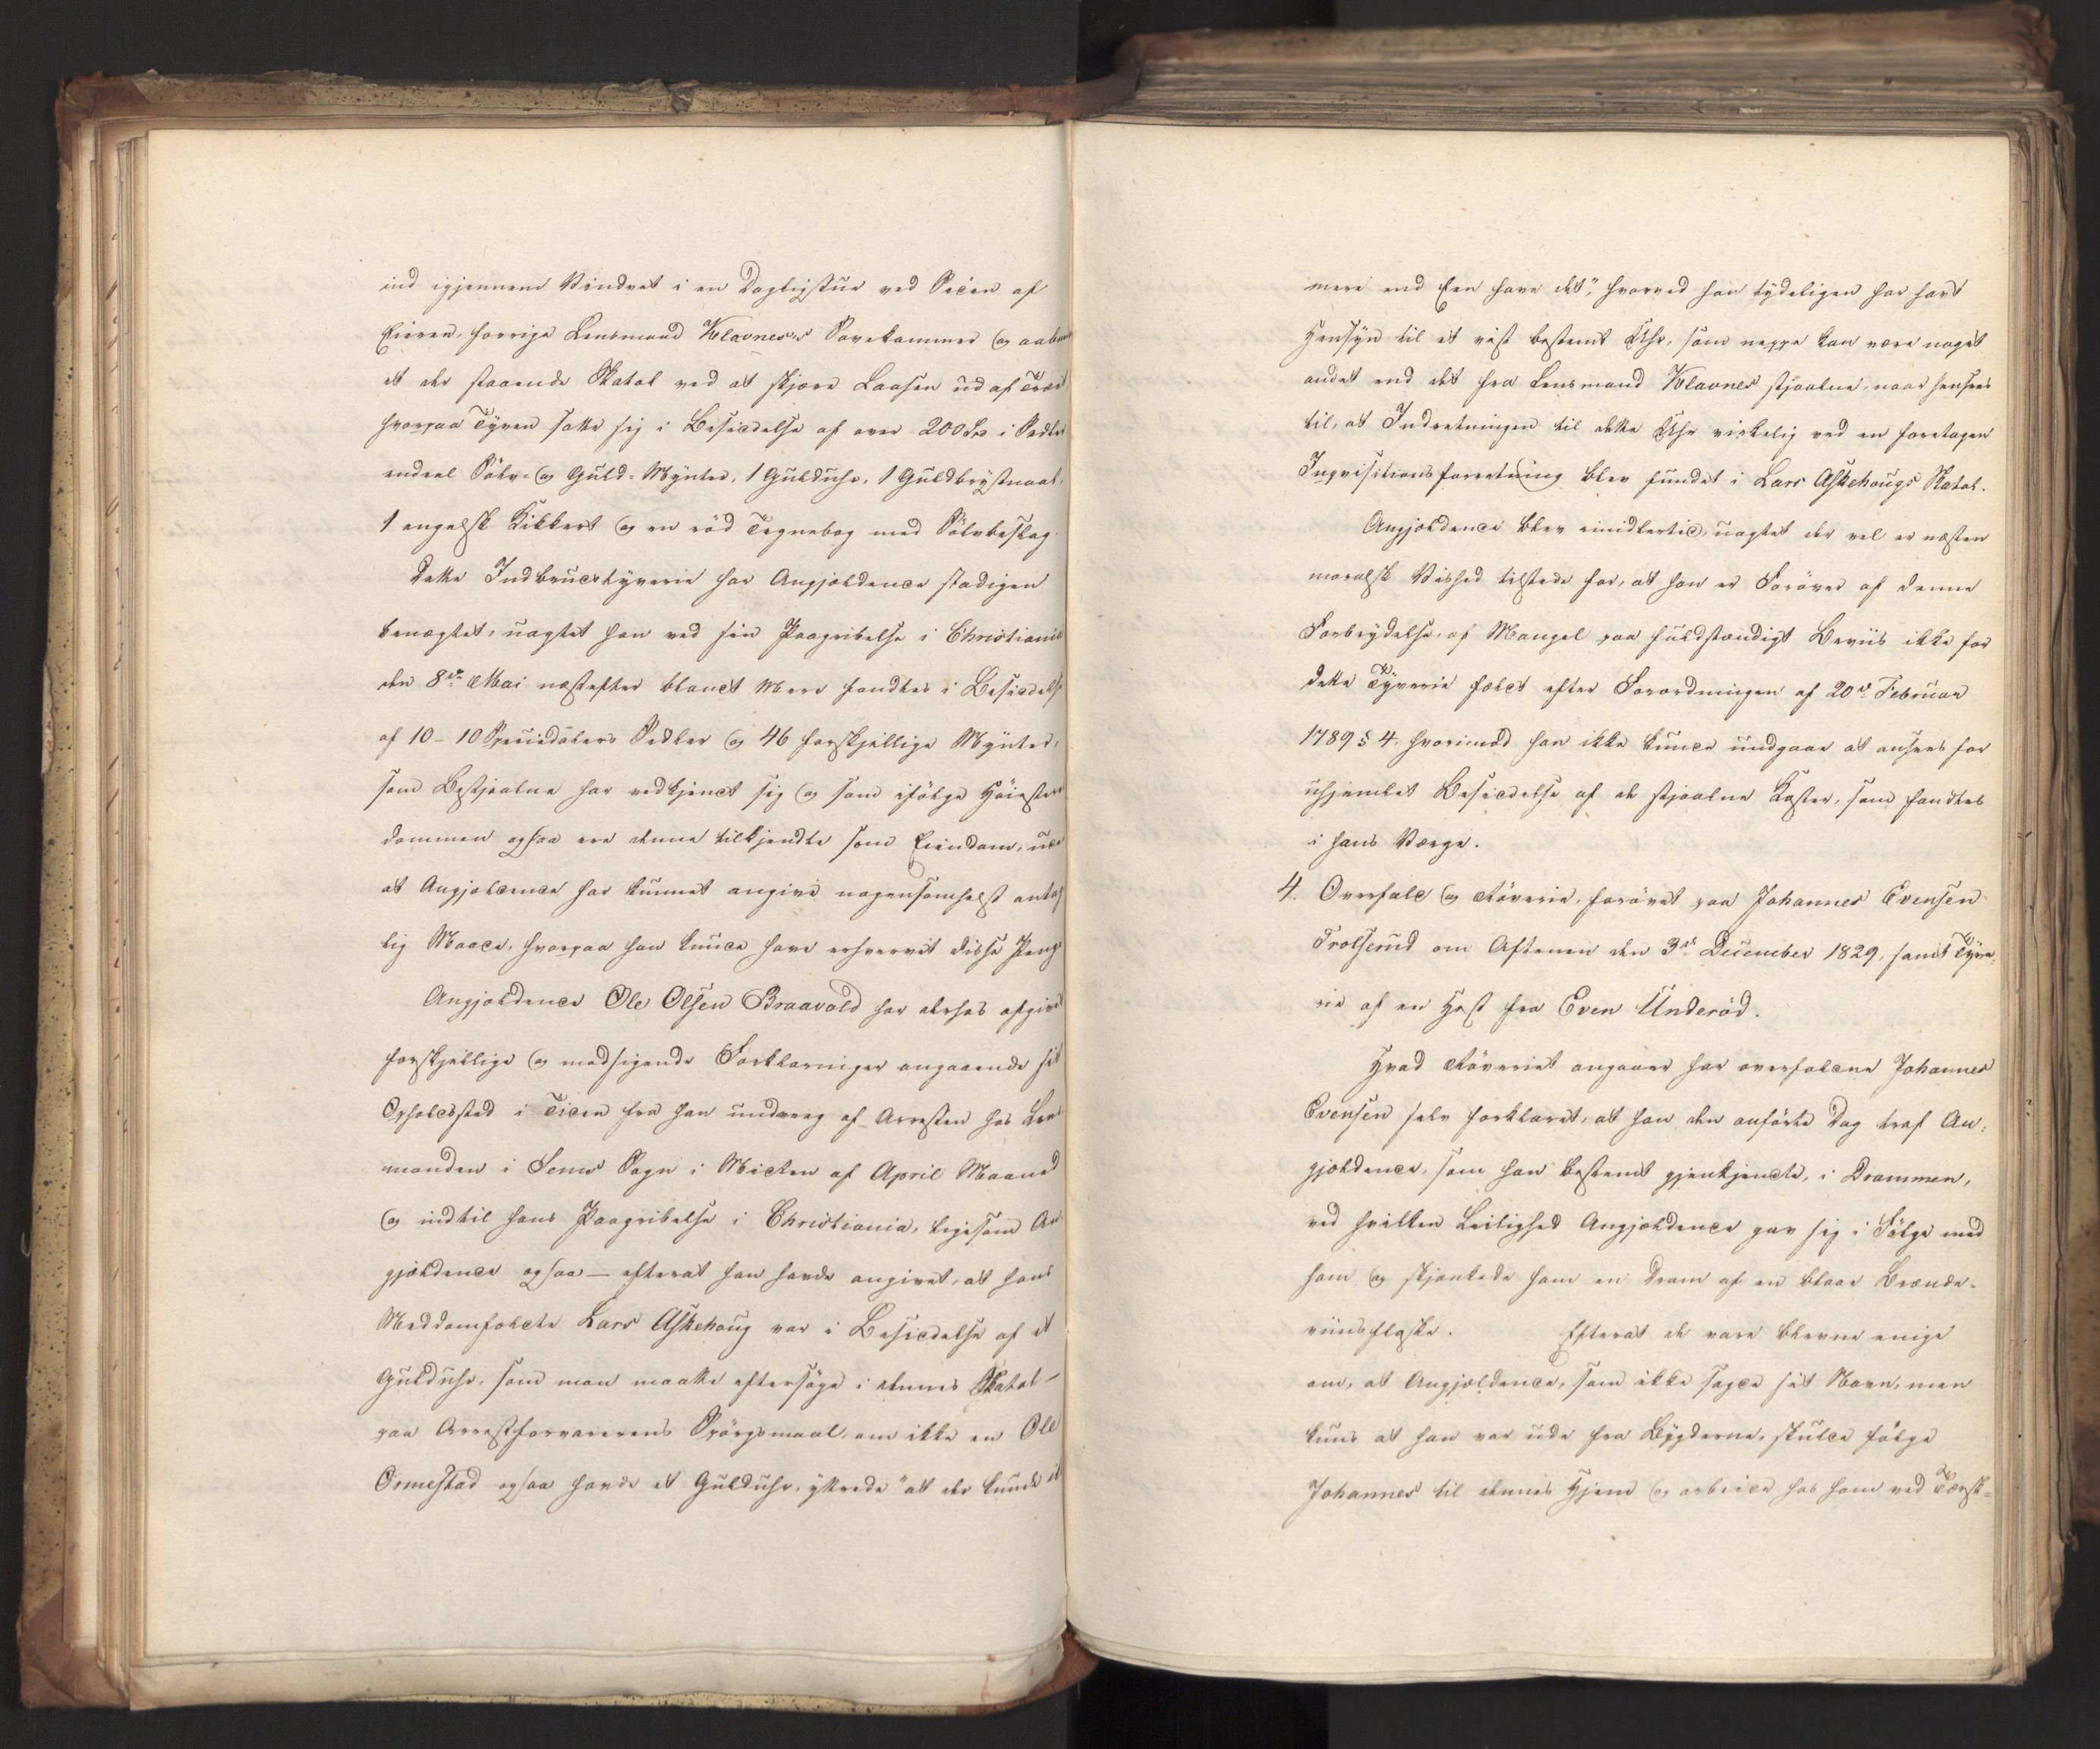 ind igjennem Vinduet i en Dagligstue ved Siden af
Eieren, forrige Lensmand Klavnes's Sovekammer og aabnet
et der staaende Skatol ved at skjære Laasen ud af Træet
hvorpaa Tyven satte sig i Besiddelse af over 200 Spd i Sedler
endeel Sölv- og Guld-Mynter, 1 Gulduhr, 1 Guldbrystnaal,
1 engelsk Kikkert og en röd Tegnebog med Sölvbeslag.
Dette Indbrudstyverie har Angjældende stadigen
benægtet, uagtet han ved sin Paagribelse i Christiania
den 8de Mai næstefter blandt Mere fandtes i Besiddelse
af 10 - 10 Speciedalers Sedler og 46 forskjellige Mynter,
som Bestjaalne har vedkjendt sig og som ifölge Höiesterets
dommen ogsaa ere denne tilkjendte som Eiendom, uden
at Angjældende har kunnet angive nogensomhelst antag
lig Maade, hvorpaa han kunde have erhvervet disse Penge
Angjældende Ole Olsen Braavold har derhos afgivet
forskjellige og modsigende Forklaringer angaaende sit
Opholdssted i Tiden fra han undveeg af Arresten hos Lens
manden i Sems Sogn i Midten af April Maaned
og indtil hans Paagribelse i Christiania, ligesom An
gjældende ogsaa — efterat han havde angivet, at hans
Meddomfældte Lars Askehoug var i Besiddelse af et
Gulduhr, som man maatte eftersöge i dennes Skatol —
paa Arrestforvarerens Spörgsmaal, om ikke en Ole
Ormestad ogsaa havde et Gulduhr, yttrede "at der kunde ei
mere end Een have det", hvorved han tydeligen har havt
Hensyn til et vist bestemt Uhr, som neppe kan være noget
andet end det fra Lensmand Klavnes stjaalne, naar henses
til, at Indretningen til dette Uhr virkelig ved en foretagen
Inqvisitionsforretning blev fundet i Lars Askehougs Skatol.
Angjældende blev imidlertid, uagtet der vel er næsten
moralsk Vished tilstede for, at han er Foröver af denne
Forbrydelse, af Mangel paa fuldstændigt Beviis ikke for
dette Tyverie fældt efter Forordningen af 20de Februar
1789 § 4. hvorimod han ikke kunde undgaae at ansees for
uhjemlet Besiddelse af de stjaalne Koster, som fandtes
i hans Værge.
4. Overfald og Röverie, forövet paa Johannes Evensen
Trolserud om Aftenen den 3de December 1829, samt Tyve-
rie af en Hest fra Even Underöd.
Hvad Röveriet angaaer har overfaldne Johannes
Evensen selv forklaret, at han den anförte Dag traf An-
gjældende, som han bestemt gjenkjendte, i Drammen,
ved hvilken Leilighed Angjældende gav sig i Fölge med
ham og skjænkede ham en Dram af en blaae Brænde-
viinsflaske. Efterat de vare blevne enige
om, at Angjældende, som ikke sagde sit Navn, men
kuns at han var ude fra Bygderne, skulde fölge
Johannes til dennes Hjem og arbeide hos ham ved Tærsk-